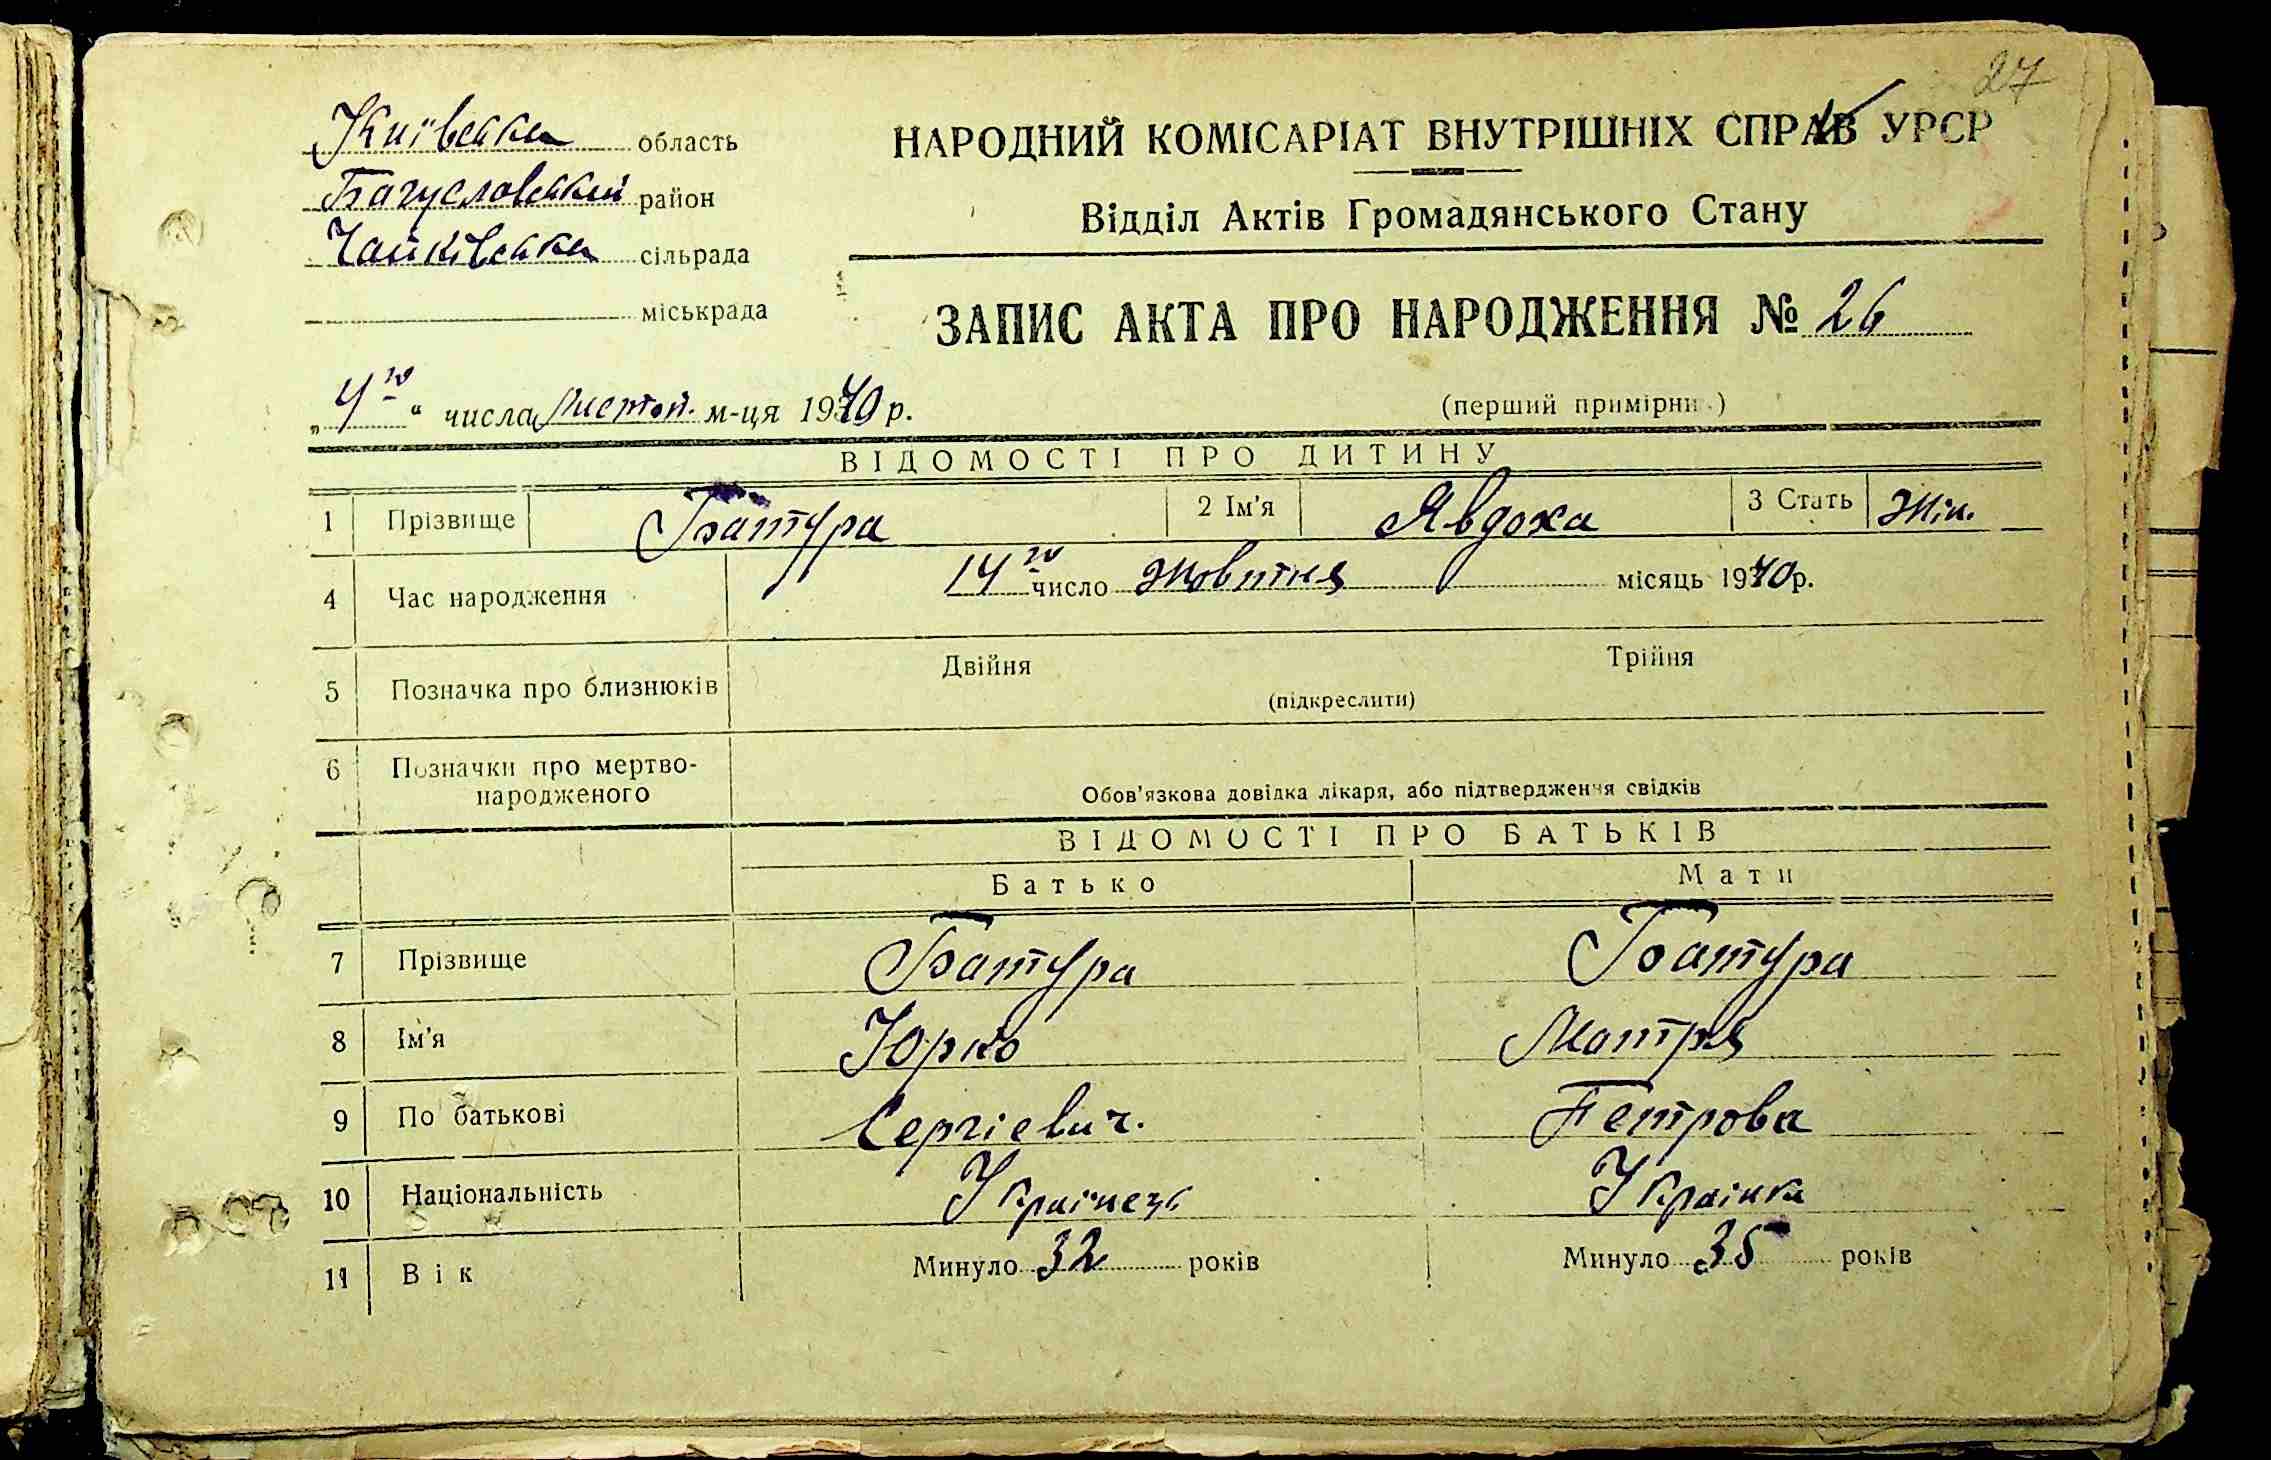 27
Київська область
НАРОДНИЙ КОМІСАРІАТ ВНУТРІШНІХ СПРАВ УРСР
Багуславський район
Відділ Актів Громадянського Стану
Чайківська сільрада
міськрада
ЗАПИС АКТА ПРО НАРОДЖЕННЯ № 26
„4го“ числа Листоп. м-ця 1940 р.
(перший примірник)
ВІДОМОСТІ ПРО ДИТИНУ
1 Прізвище Батура 2 Ім'я Явдоха 3 Стать Жін.
4 Час народження 14го число Жовтня місяць 1940р.
5 Позначка про близнюків Двійня Трійня
(підкреслити)
6 Позначки про мертво-
народженого Обов'язкова довідка лікаря, або підтвердження свідків
ВІДОМОСТІ ПРО БАТЬКІВ
Батько Мати
7 Прізвище Батура Батура
8 Ім'я Юрко Мотря
9 По батькові Сергієвич. Петрова
10 Національність Українець Українка
11 Вік Минуло 32 років Минуло 35 років